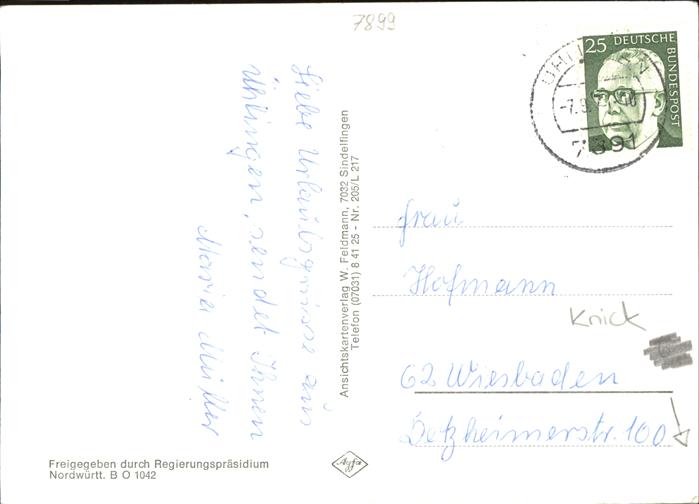 7899
Liebe Urlaubsgrüsse aus
Ühlingen, sendet Ihnen
Maria Müller
Ansichtskartenverlag W. Feldmann, 7032 Sindelfingen
Telefon (07031) 8 41 25 - Nr. 205/L 217
25 DEUTSCHE BUNDESPOST
7891
Frau
Hofmann
Knick
62 Wiesbaden
Dotzheimerstr. 100
Freigegeben durch Regierungspräsidium
Nordwürtt. B O 1042
Agfa